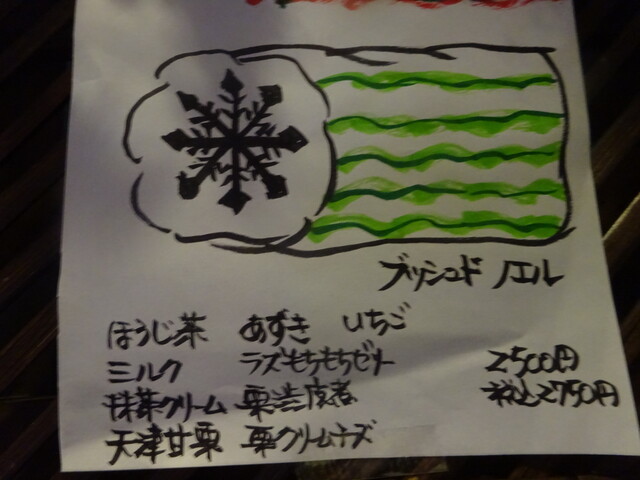 ブッシュド ノエル
ほうじ茶 あずき いちご
ミルク ラズもちもちゼリー 2500円
抹茶クリーム 栗渋皮煮 税込2750円
天津甘栗 栗クリームチーズ